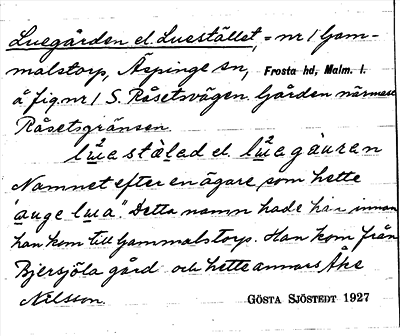 Luegården el. Luestället, = nr 1 Gam-
malstorp, Äspinge sn, Frosta hd, Malm. l.
å fig. nr 1 S. Råsetsvägen. Gården närmast
Råsetsgränsen.
lu̯astálad el. lu̯agáuran
Namnet efter en ägare som hette
"auge lua". Detta namn hade han innan
han kom till Gammalstorp. Han kom från
Bjersjöla gård och hette annars Åke
Nilsson.
GÖSTA SJÖSTEDT 1927